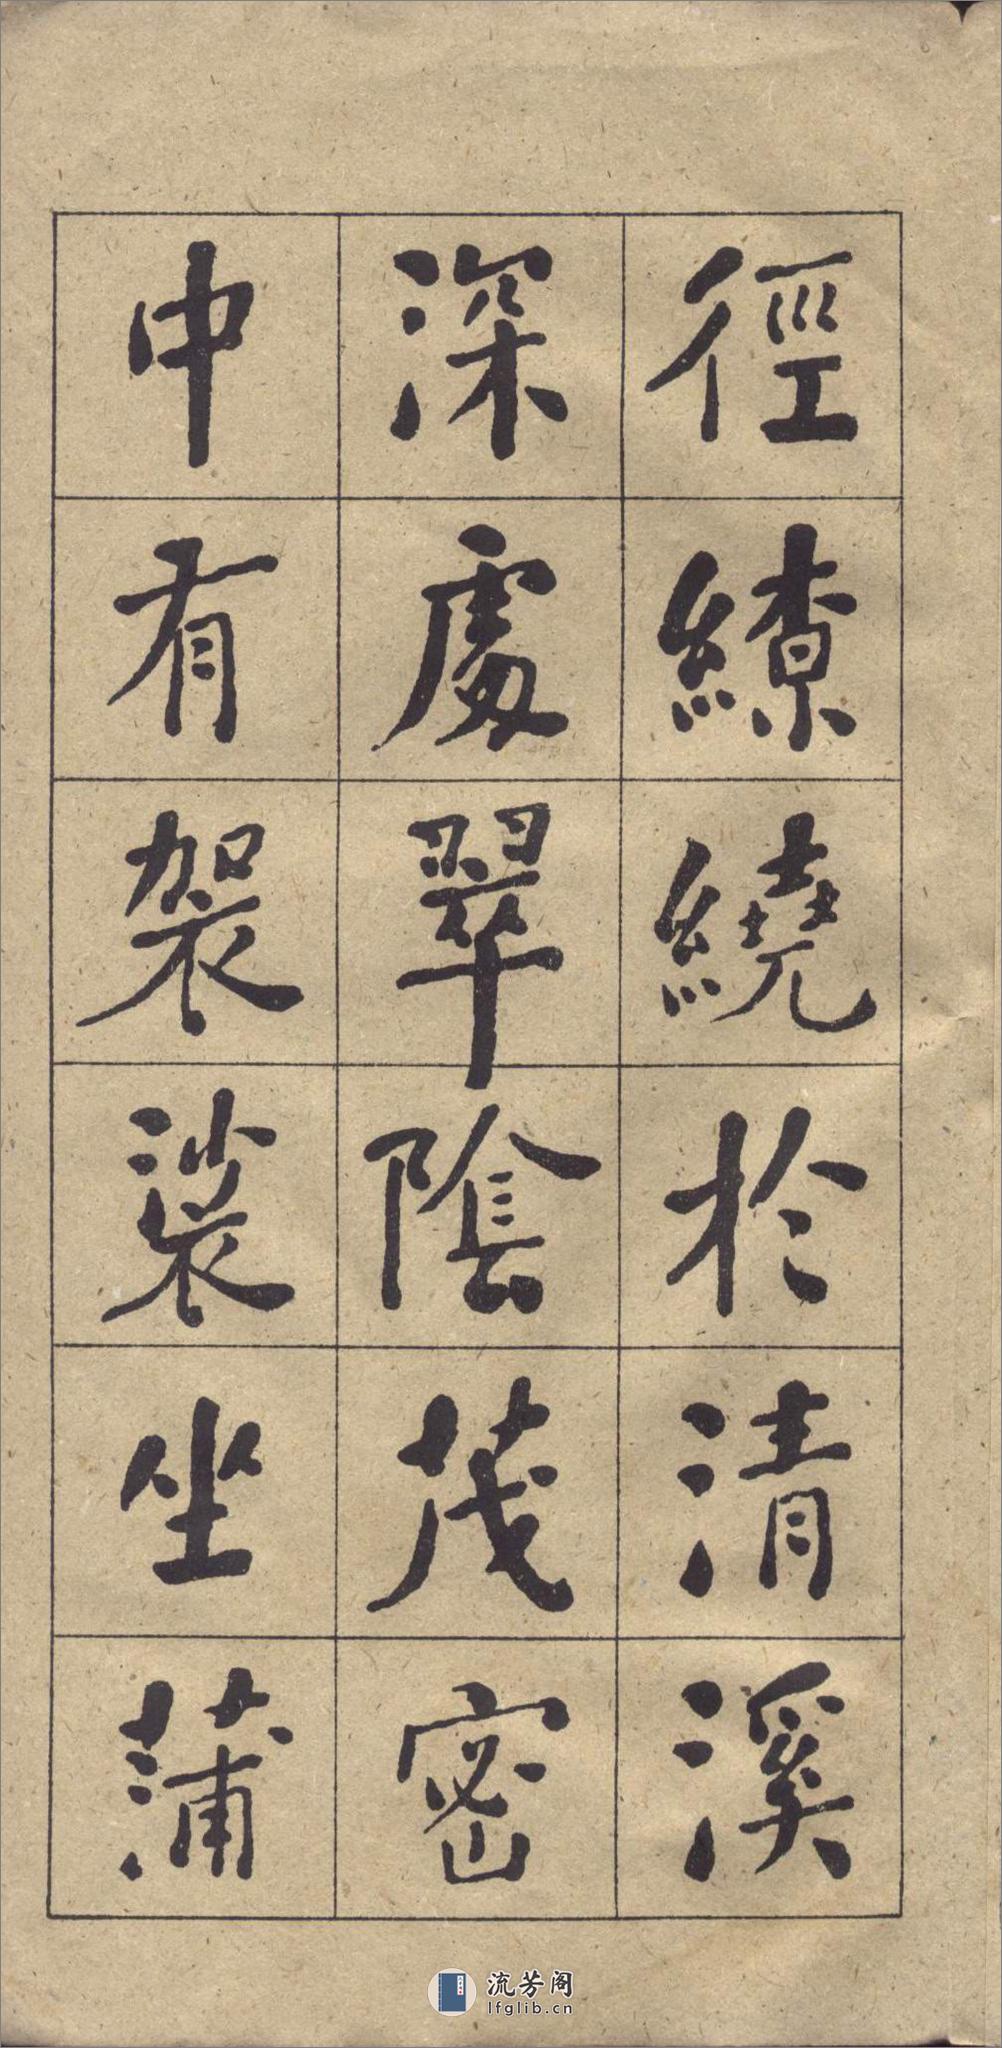 徑繚繞於清溪
深處翠陰茂密
中有袈裟坐蒲
流芳阁
lfglib.cn